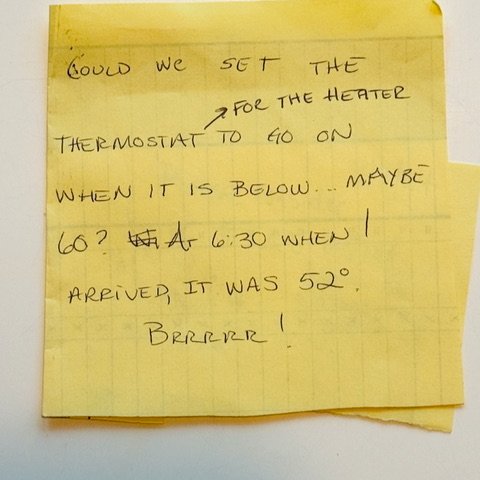 COULD WE SET THE
FOR THE HEATER
THERMOSTAT TO GO ON
WHEN IT IS BELOW... MAYBE
60? At 6:30 WHEN I
ARRIVED, IT WAS 52°.
BRRRRR!